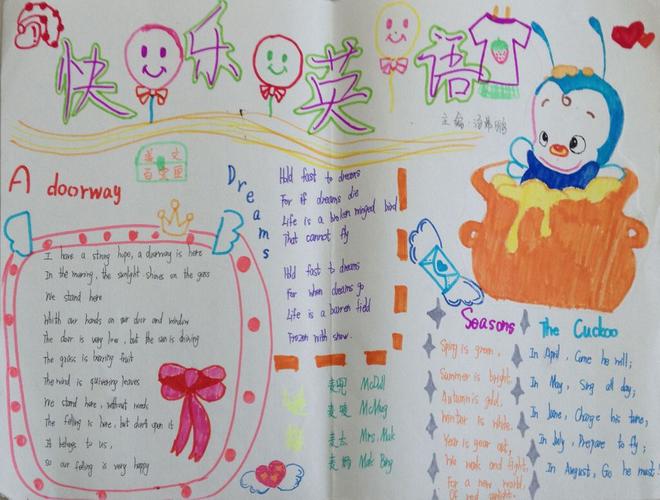 快乐英语
主编
英文
百宝里
A doorway
I have a strong hope, a doorway is here
In the morning, the sunlight shines on the grass
We stand here
With our hands on our door and window
The door is very low, but the sun is shining
The grass is bearing fruit
The wind is quivering leaves
We stand here, without words
The felling is here, but don't open it
It belongs to us,
so our feeling is very happy
Dreams
Hold fast to dreams
For if dreams die
Life is a broken winged bird
That cannot fly
Hold fast to dreams
For when dreams go
Life is a barren field
Frozen with snow.
麦兜 McDull
麦唛 McMug
麦太 Mrs. Mak
Mak Bing
Seasons
Spring is green,
Summer is bright,
Autumn is gold,
Winter is white.
Year is year out,
We work and fight,
For a new world,
Of red
The Cuckoo
In April, Come he will;
In May, Sing all day;
In June, Change his tune;
In July, Prepare to fly;
In August, Go he must.